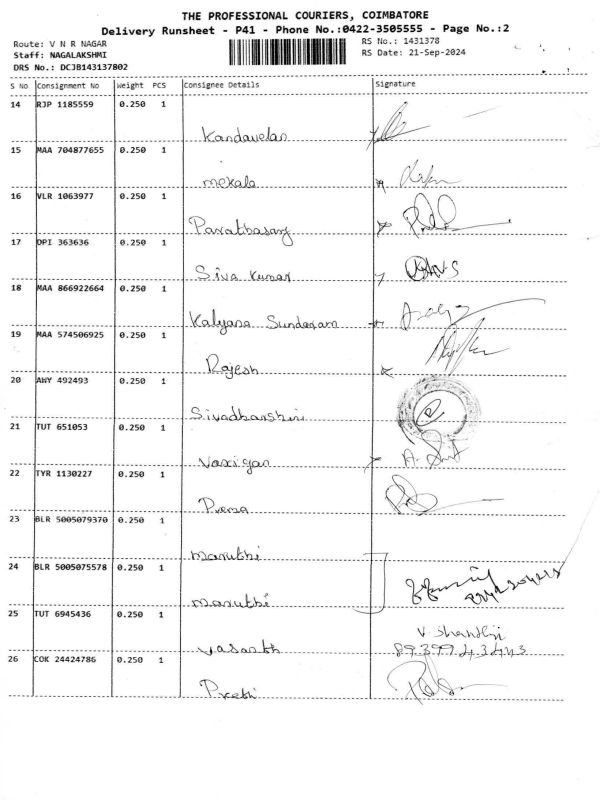 THE PROFESSIONAL COURIERS, COIMBATORE
Delivery Runsheet - P41 - Phone No.:0422-3505555 - Page No.:2
Route: V N R NAGAR RS No.: 1431378
Staff: NAGALAKSHMI RS Date: 21-Sep-2024
DRS No.: DCJB143137802
S No Consignment No Weight PCS Consignee Details Signature
14 RJP 1185559 0.250 1
Kandavelan
15 MAA 704877655 0.250 1
mekala
16 VLR 1063977 0.250 1
17 OPI 363636 0.250 1
Siva kumar
18 MAA 866922664 0.250 1
Kalyana Sundaram
19 MAA 574506925 0.250 1
Rajesh
20 AHY 492493 0.250 1
Sivadharshini
21 TUT 651053 0.250 1
22 TYR 1130227 0.250 1
Prema
23 BLR 5005079370 0.250 1
maruthi
24 BLR 5005075578 0.250 1
maruthi
25 TUT 6945436 0.250 1
V. Shanthi
Vasanth
26 COK 24424786 0.250 1
Preethi